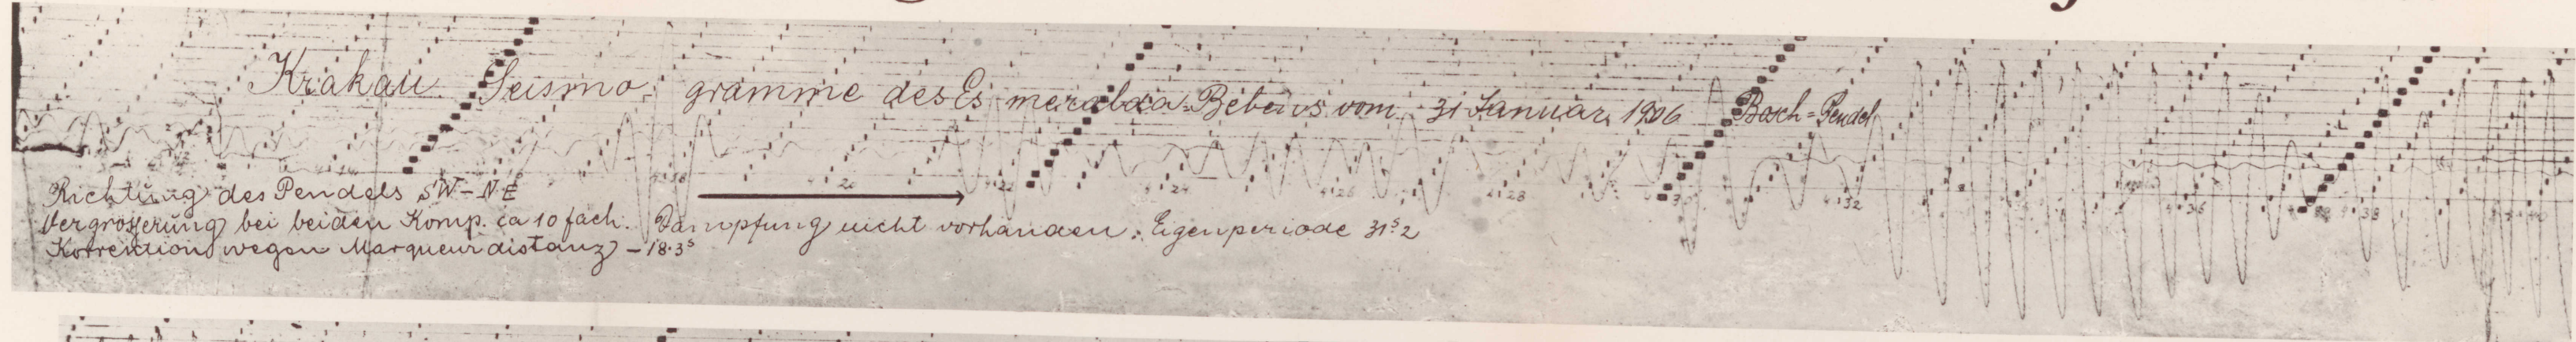 Krakau Seismogramme des Esmeraldas-Bebens vom 31 Januar 1906 Bosch-Pendel
Richtung des Pendels SW-NE
Vergrösserung bei beiden Komp. ca 10 fach. Dämpfung nicht vorhanden. Eigenperiode 31ˢ.2
Korrektion wegen Marqueurdistanz - 18.3ˢ